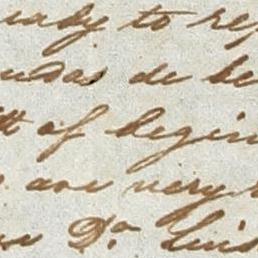 ready to rep
udas de be
tt of begin
are very
Dn Luis